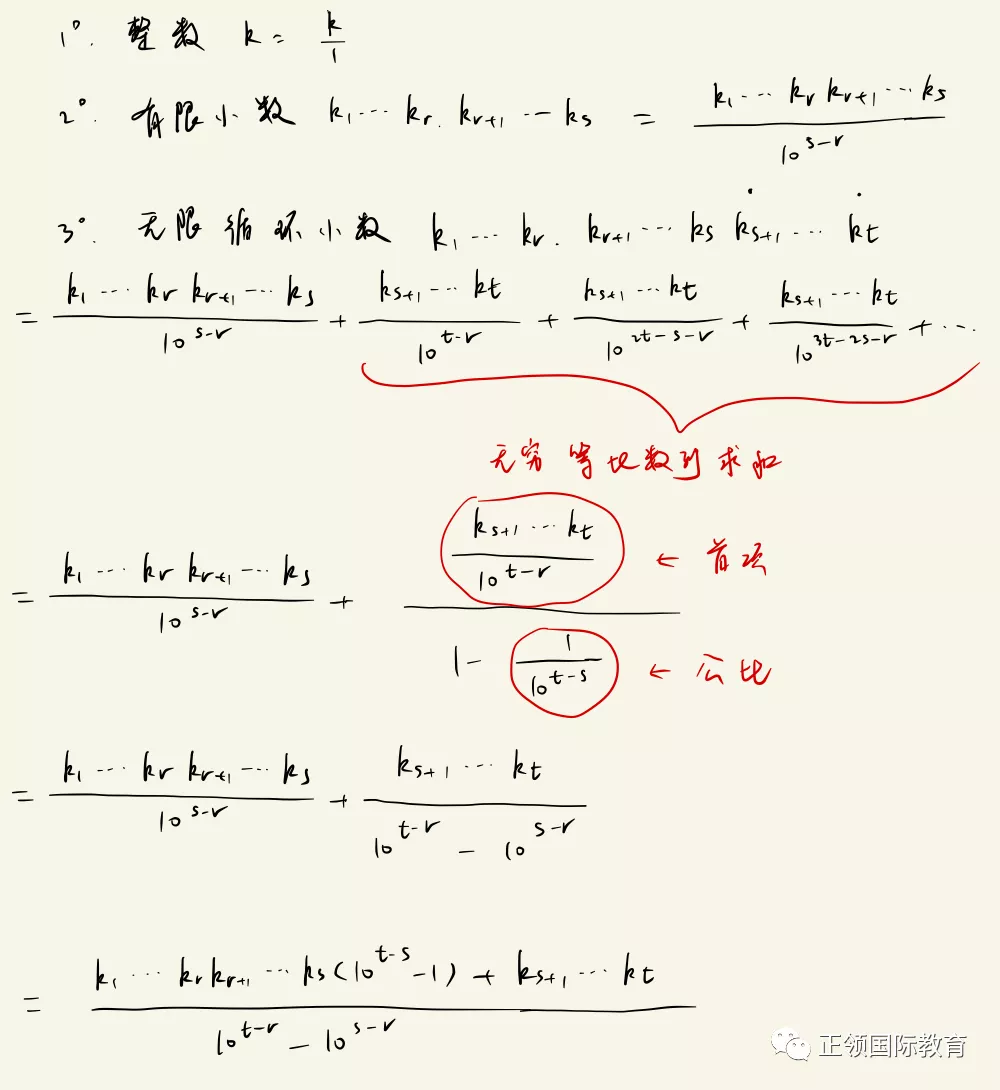 1°. 整数 k = k/1
2°. 有限小数 k₁ ⋯ kᵣ. kᵣ₊₁ ⋯ kₛ = (k₁ ⋯ kᵣ kᵣ₊₁ ⋯ kₛ)/10^(s-r)
3°. 无限循环小数 k₁ ⋯ kᵣ. kᵣ₊₁ ⋯ kₛ k̇ₛ₊₁ ⋯ k̇ₜ
= (k₁ ⋯ kᵣ kᵣ₊₁ ⋯ kₛ)/10^(s-r) + (kₛ₊₁ ⋯ kₜ)/10^(t-r) + (kₛ₊₁ ⋯ kₜ)/10^(2t-s-r) + (kₛ₊₁ ⋯ kₜ)/10^(3t-2s-r) + ⋯
无穷等比数列求和
= (k₁ ⋯ kᵣ kᵣ₊₁ ⋯ kₛ)/10^(s-r) + ((kₛ₊₁ ⋯ kₜ)/10^(t-r))/(1 - 1/10^(t-s))
← 首项
← 公比
= (k₁ ⋯ kᵣ kᵣ₊₁ ⋯ kₛ)/10^(s-r) + (kₛ₊₁ ⋯ kₜ)/(10^(t-r) - 10^(s-r))
= (k₁ ⋯ kᵣ kᵣ₊₁ ⋯ kₛ(10^(t-s) - 1) + kₛ₊₁ ⋯ kₜ)/(10^(t-r) - 10^(s-r))
正领国际教育